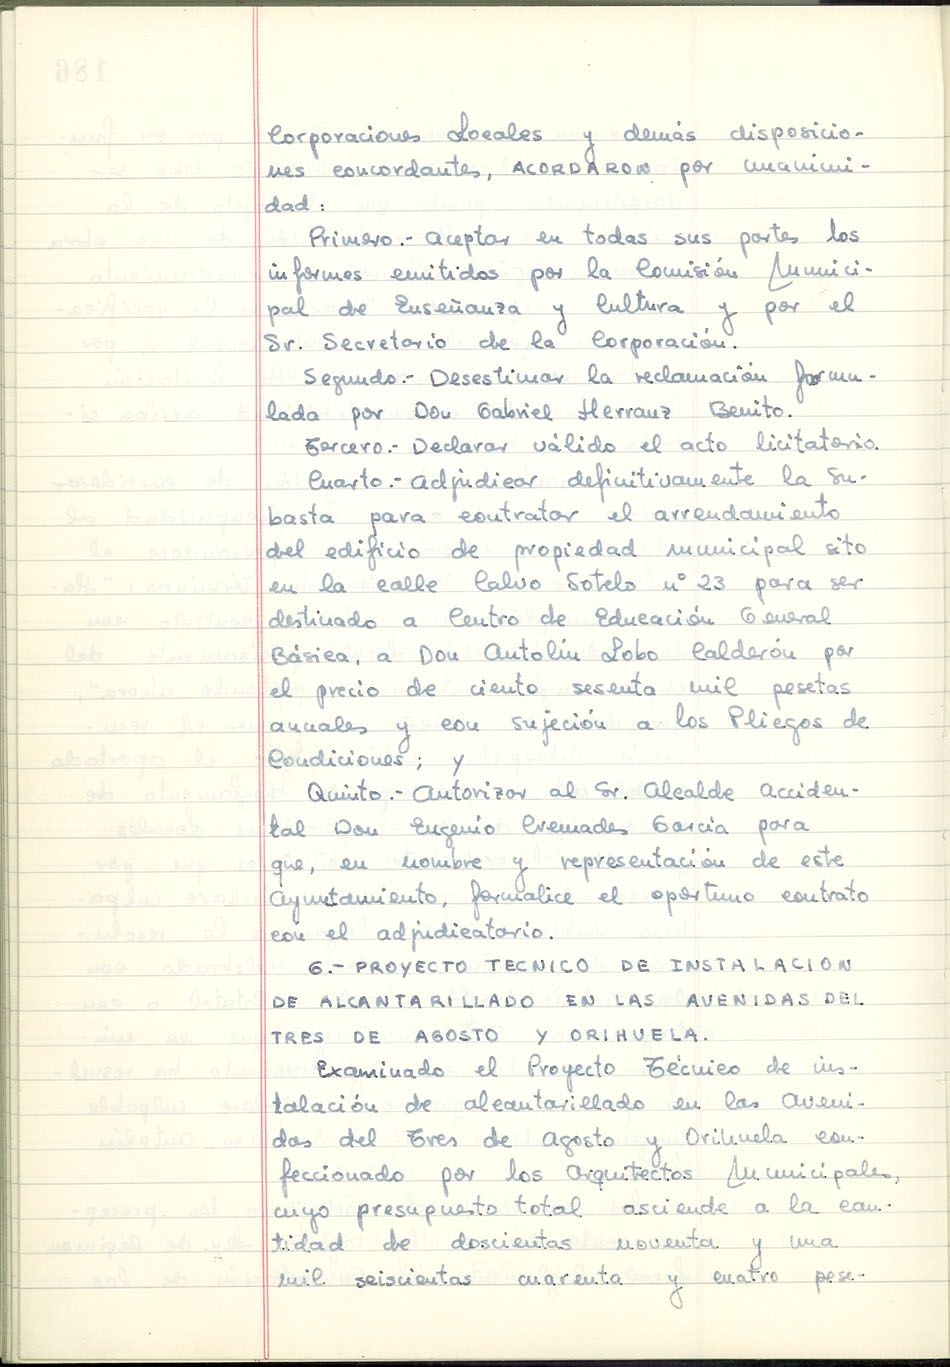 Corporaciones Locales y demás disposicio-
nes concordantes, ACORDARON por unanimi-
dad:
Primero.- Aceptar en todas sus partes los
informes emitidos por la Comisión Munici-
pal de Enseñanza y Cultura y por el
Sr. Secretario de la Corporación.
Segundo.- Desestimar la reclamación formu-
lada por Don Gabriel Herranz Benito.
Tercero.- Declarar válido el acto licitatorio.
Cuarto.- Adjudicar definitivamente la Su-
basta para contratar el arrendamiento
del edificio de propiedad municipal sito
en la calle Calvo Sotelo nº 23 para ser
destinado a Centro de Educación General
Básica, a Don Antolín Lobo Calderón por
el precio de ciento sesenta mil pesetas
anuales y con sujeción a los Pliegos de
Condiciones; y
Quinto.- Autorizar al Sr. Alcalde acciden-
tal Don Eugenio Cremades García para
que, en nombre y representación de este
Ayuntamiento, formalice el oportuno contrato
con el adjudicatario.
6.- PROYECTO TECNICO DE INSTALACION
DE ALCANTARILLADO EN LAS AVENIDAS DEL
TRES DE AGOSTO Y ORIHUELA.
Examinado el Proyecto Técnico de ins-
talación de alcantarillado en las Aveni-
das del Tres de Agosto y Orihuela con-
feccionado por los Arquitectos Municipales,
cuyo presupuesto total asciende a la can-
tidad de doscientas noventa y una
mil seiscientas cuarenta y cuatro pese-